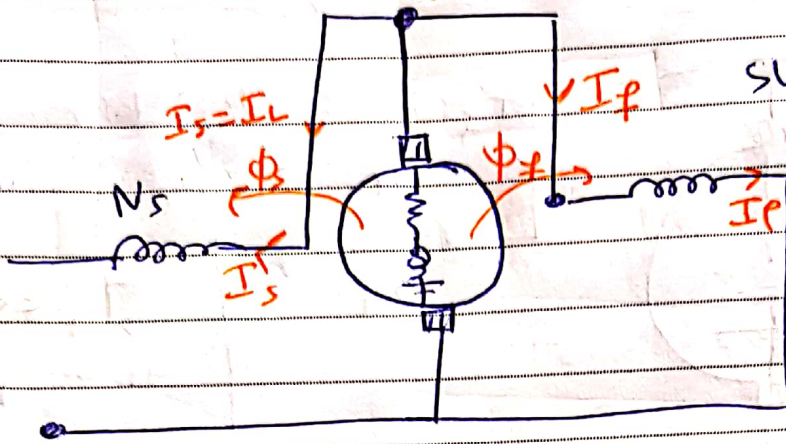 Is = IL
If
Φs
Φf
Ns
Is
If